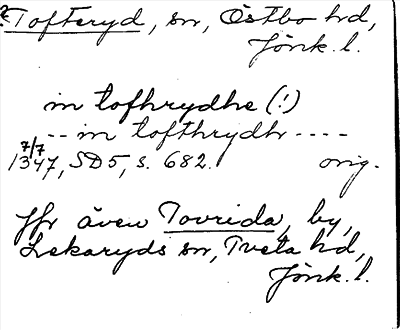 ? Tofteryd, sn, Östbo hd,
Jönk. l.
in tofhrydhe (!)
-- in tofthrydh ----
7/7
1347, SD 5, s. 682. orig.
Jfr även Tovrida, by,
Lekaryds sn, Tveta hd,
Jönk. l.